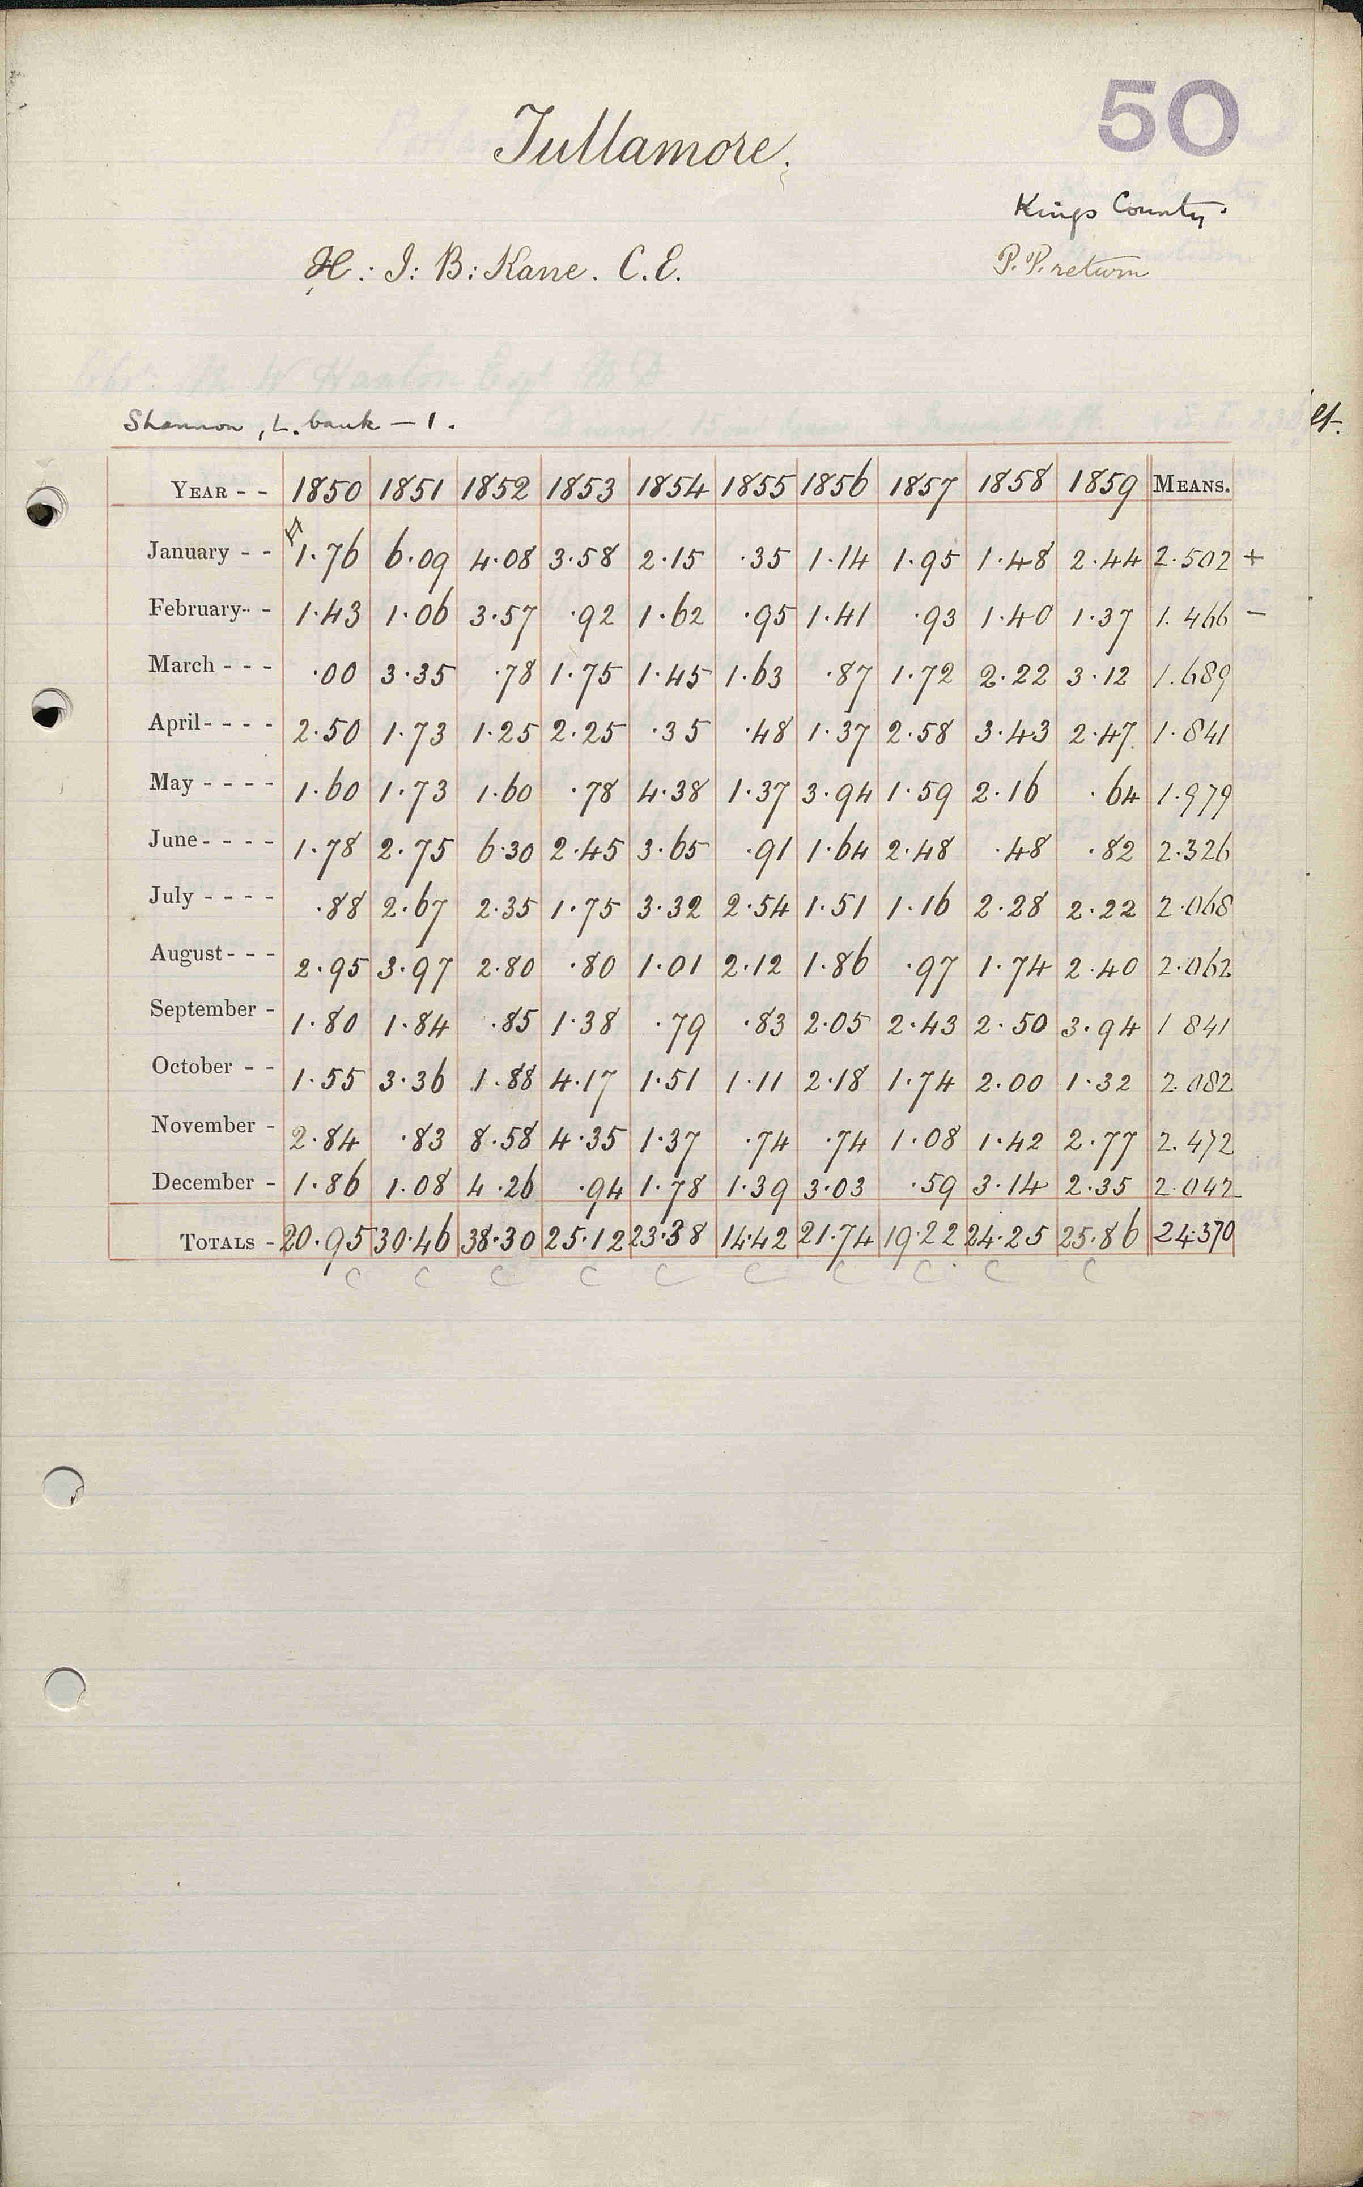 50
Tullamore.
Kings County.
H: I: B: Kane. C.E.
P. P. return
Shannon, L. bank — 1.
YEAR - - 1850 1851 1852 1853 1854 1855 1856 1857 1858 1859 MEANS.
January - - 1.76 6.09 4.08 3.58 2.15 .35 1.14 1.95 1.48 2.44 2.502 +
February - - 1.43 1.06 3.57 .92 1.62 .95 1.41 .93 1.40 1.37 1.466 —
March - - - .00 3.35 .78 1.75 1.45 1.63 .87 1.72 2.22 3.12 1.689
April - - - - 2.50 1.73 1.25 2.25 .35 .48 1.37 2.58 3.43 2.47 1.841
May - - - - 1.60 1.73 1.60 .78 4.38 1.37 3.94 1.59 2.16 .64 1.979
June - - - - 1.78 2.75 6.30 2.45 3.65 .91 1.64 2.48 .48 .82 2.326
July - - - - .88 2.67 2.35 1.75 3.32 2.54 1.51 1.16 2.28 2.22 2.068
August - - - 2.95 3.97 2.80 .80 1.01 2.12 1.86 .97 1.74 2.40 2.062
September - 1.80 1.84 .85 1.38 .79 .83 2.05 2.43 2.50 3.94 1 841
October - - 1.55 3.36 1.88 4.17 1.51 1.11 2.18 1.74 2.00 1.32 2.082
November - 2.84 .83 8.58 4.35 1.37 .74 .74 1.08 1.42 2.77 2.472
December - 1.86 1.08 4.26 .94 1.78 1.39 3.03 .59 3.14 2.35 2.042
TOTALS - 20.95 30.46 38.30 25.12 23.38 14.42 21.74 19.22 24.25 25.86 24.370
C C C C C C C C C C